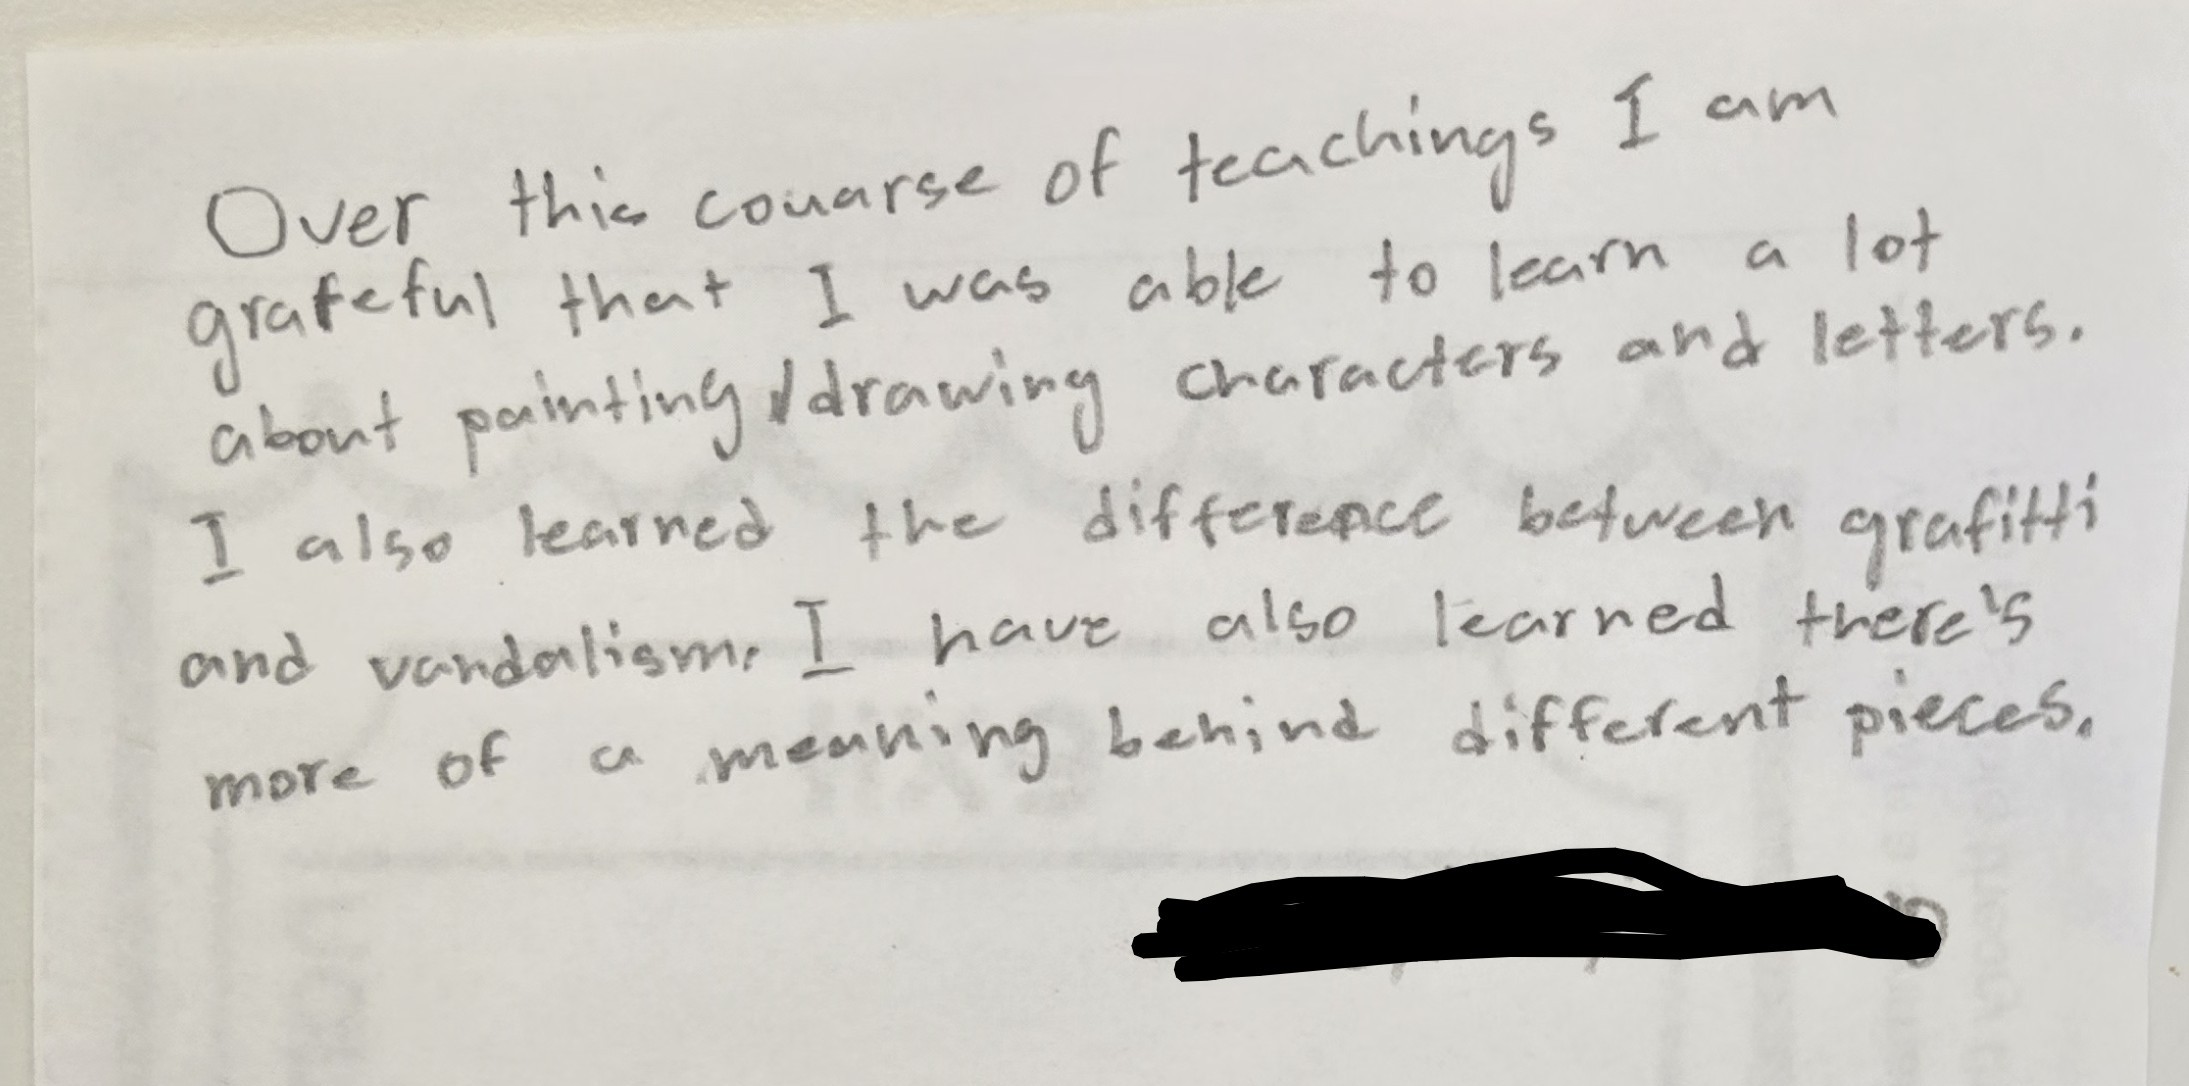 Over this couarse of teachings I am
grateful that I was able to learn a lot
about painting/drawing characters and letters.
I also learned the difference between grafitti
and vandalism. I have also learned there's
more of a meaning behind different pieces.